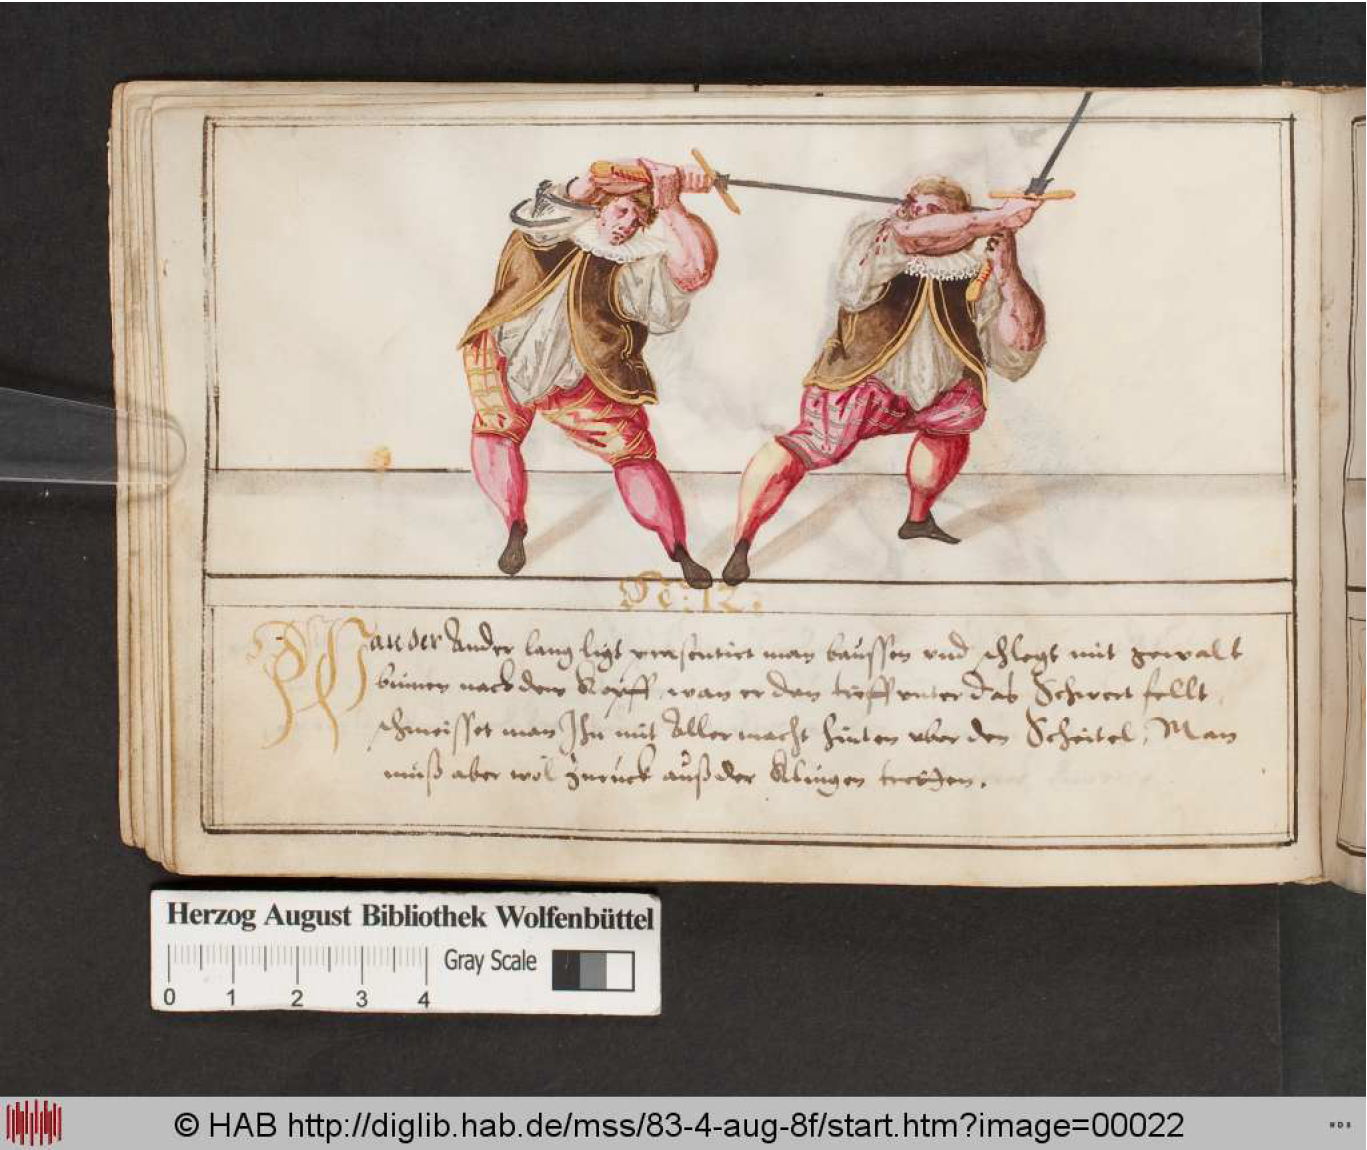 N: 12.
Wan der Ander lang ligt præsentirt man baussen vnd schlegt mit gewalt
binnen nach dem Kopff, wan er dan tieff vnter das Schwert fellt,
schmeisset man Ihn mit Aller macht hinten vber den Scheitel, Man
muß aber wol zuruck auß der Klingen tretten.
Herzog August Bibliothek Wolfenbüttel
Gray Scale
0 1 2 3 4
© HAB http://diglib.hab.de/mss/83-4-aug-8f/start.htm?image=00022